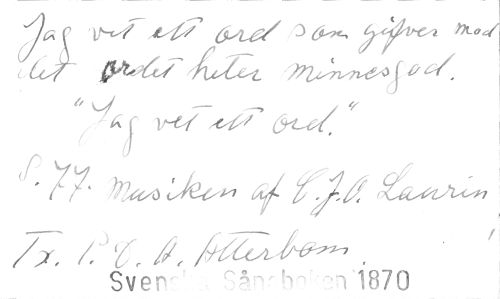 Jag vet ett ord som gifver mod
det ordet heter minnesgod.
"Jag vet ett ord."
S. 77. Musiken af C.J.O. Laurin
Tx. P. D. A. Atterbom.
Svenska Sångboken 1870